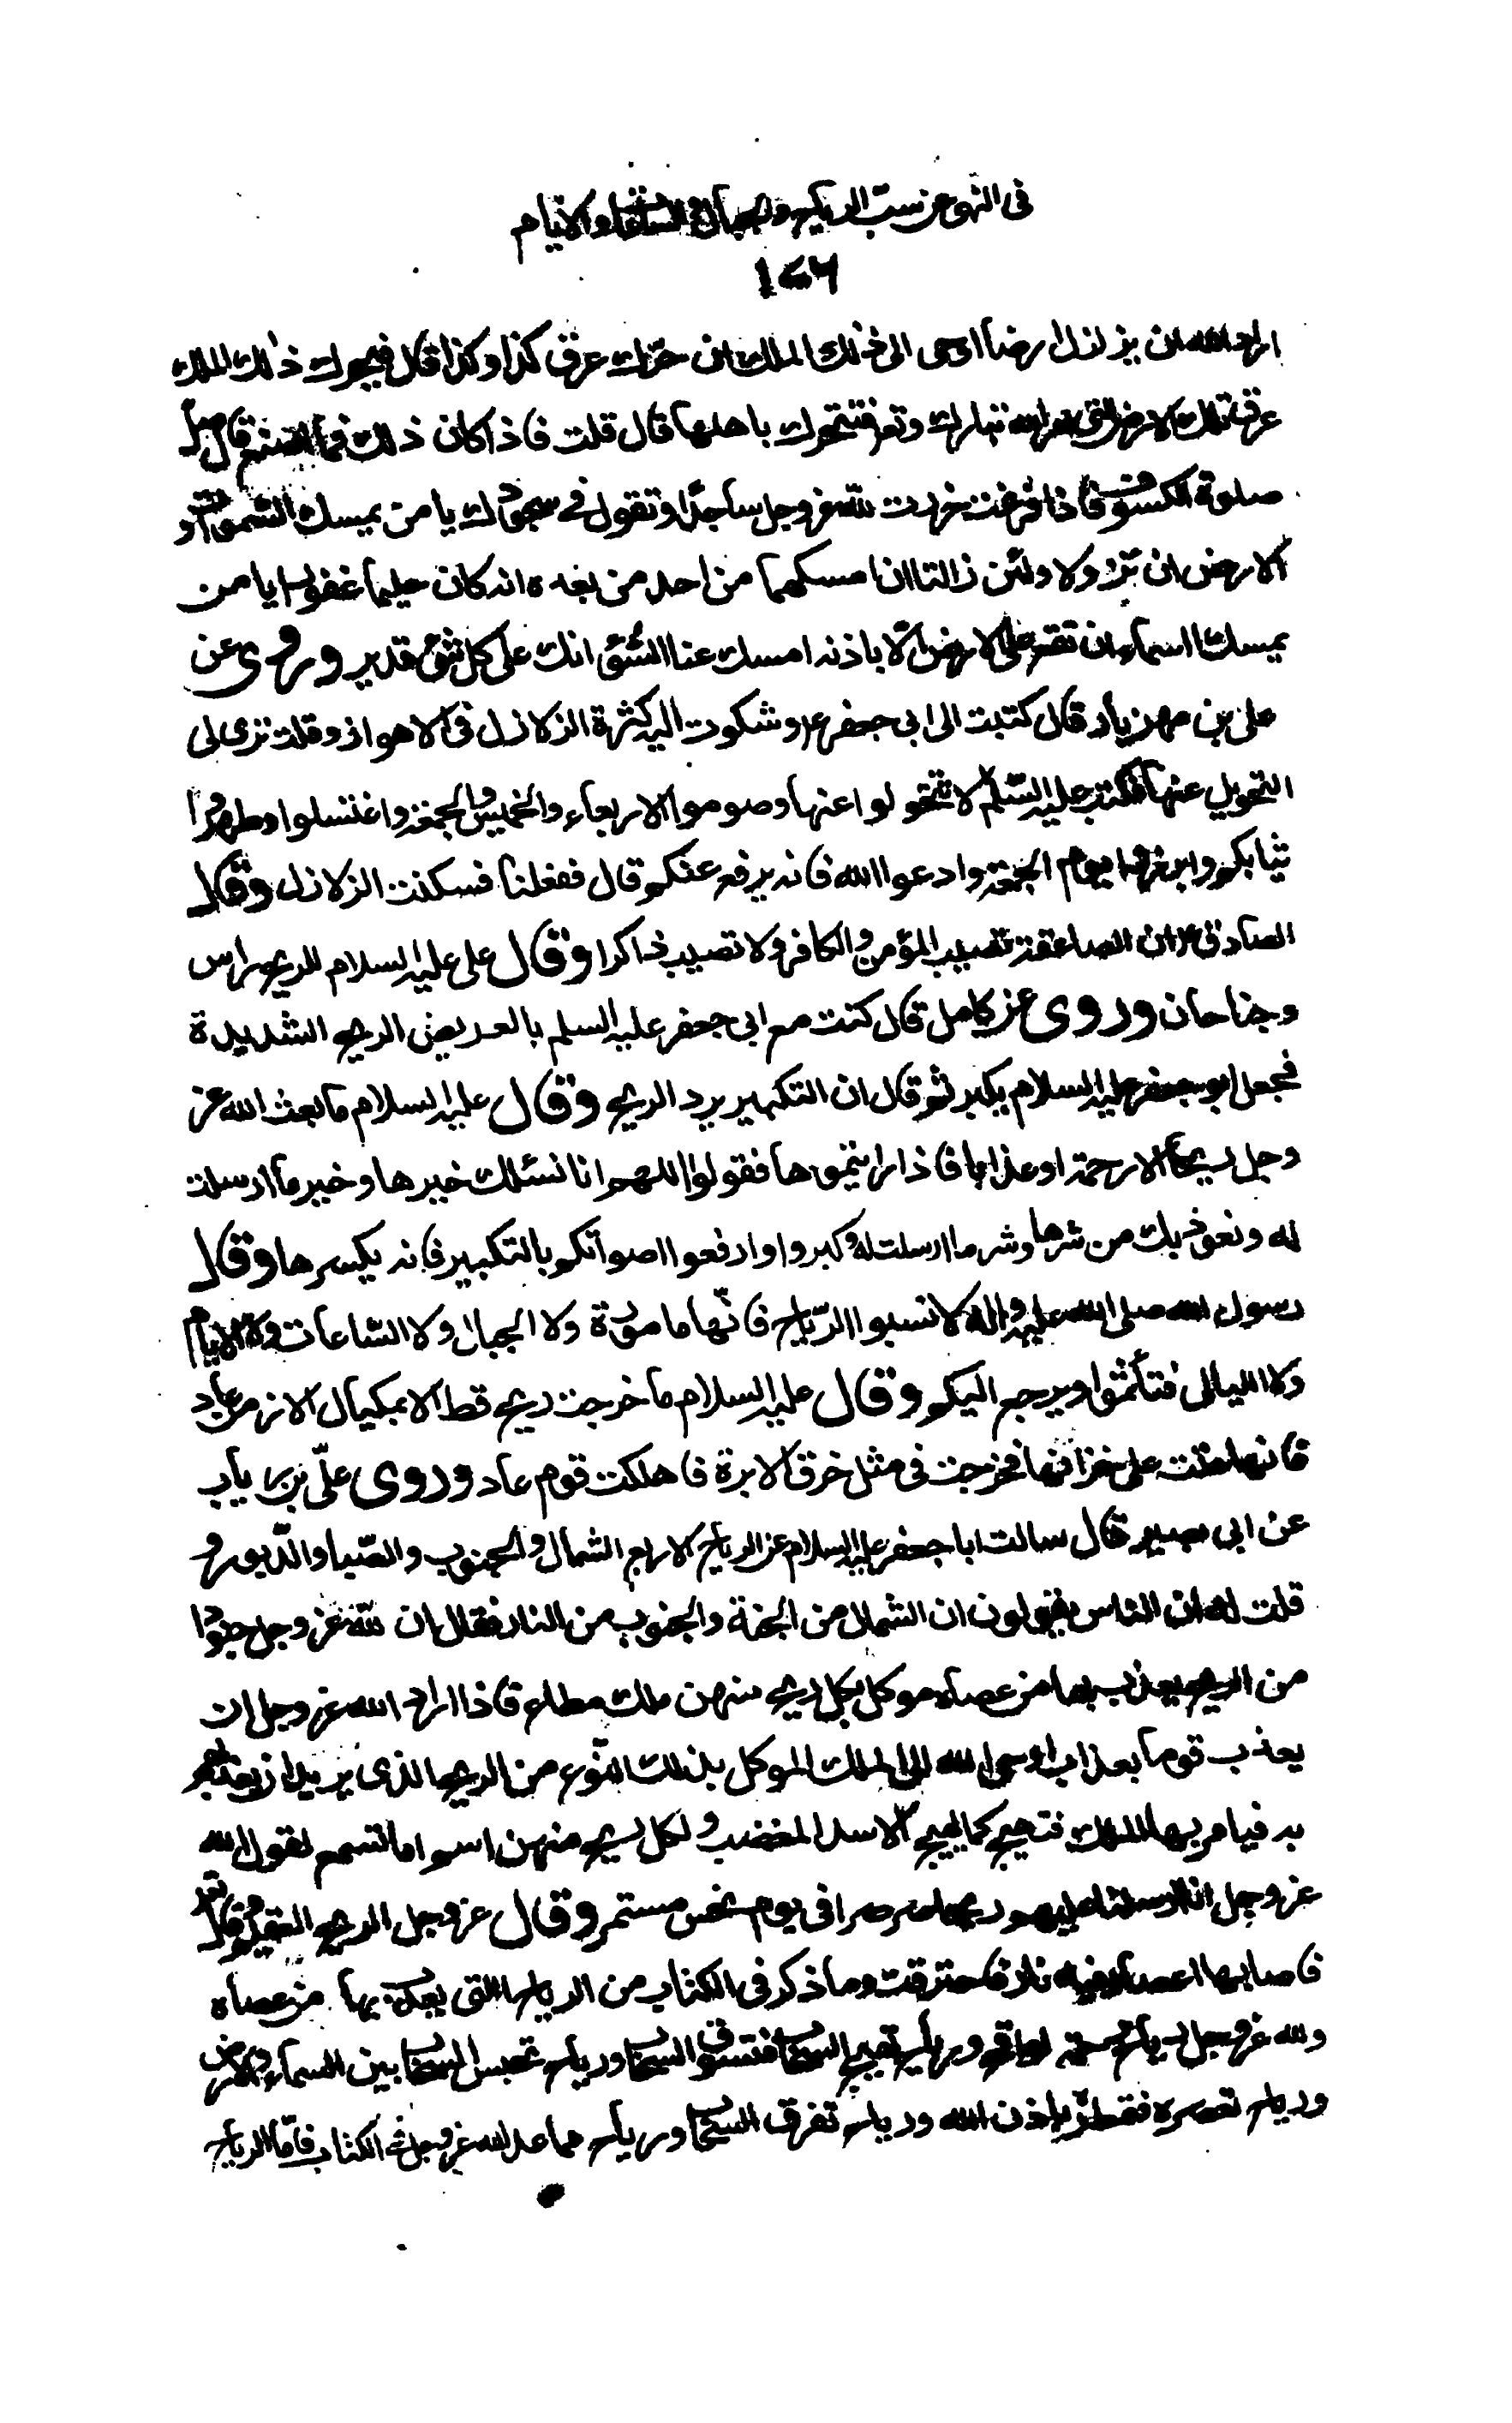 فى النهى عن سبّ الرياح والجبال والساعات والايام
١٤٦
اراد الله ان يزلزل ارضا اوحى الى ذلك الملك ان حرّك عرق كذا وكذا قال فيحرك ذلك الملك
عرق تلك الارض التى امر الله تبارك وتعـ فتتحرك باهلها قال قلت فاذا كان ذلك فما اصنع قال صلّ
صلوة الكسوف فاذا فرغت خررت لله عز وجل ساجدًا وتقول فى سجودك يا من يمسك السموات و
الارض ان تزولا ولئن زالتا ان امسكهما من احد من بعده انه كان حليما غفورا يا من
يمسك السماء ان تقع على الارض الّا باذنه امسك عنا السّوء انك على كل شئ قدير وروى عن
على بن مهزيار قال كتبت الى ابى جعفر ع وشكوت اليه كثرة الزلازل فى الاهواز وقلت ترى لى
التحويل عنها فكتب عليه السّلم لا تتحولوا عنها وصوموا الاربعاء والخميس والجمعة واغتسلوا وطهروا
ثيابكم وابرزوا يوم الجمعة وادعوا الله فانه يرفع عنكم قال ففعلنا فسكنت الزلازل وقال
الصادق ع ان الصاعقة تصيب المؤمن والكافر ولا تصيب ذاكرا وقال على عليه السلام للريح راس
وجناحان وروى عن كامل قال كنت مع ابى جعفر عليه السلم بالعريض الريح الشديدة
فجعل ابو جعفر عليه السلام يكبر ثم قال ان التكبير يرد الريح وقال عليه السلام ما بعث الله عز
وجل ريحا الا رحمة او عذابا فاذا رايتموها فقولوا اللهم انا نسئلك خيرها وخير ما ارسلت
له ونعوذ بك من شرها وشر ما ارسلت له وكبروا وارفعوا اصواتكم بالتكبير فانه يكسرها وقال
رسول الله صلى الله عليه واله لا تسبوا الرّياح فانّها مامورة ولا الجبال ولا السّاعات ولا الايام
ولا الليالى فتأثموا ويرجع اليكم وقال عليه السلام ما خرجت ريح قط الا بمكيال الا زمن عاد
فانها عتت على خزانها فخرجت فى مثل خرق الابرة فاهلكت قوم عاد وروى علىّ بن رياب
عن ابى بصير قال سالت ابا جعفر عليه السلام عن الرياح الاربع الشمال والجنوب والصّبا والدّبور و
قلت له ان الناس يقولون ان الشمال من الجنة والجنوب من النار فقال ان لله عز وجل جنودا
من الريح يعذب بها من عصاه موكل بكل ريح منهن ملك مطاع فاذا اراد الله عز وجل ان
يعذب قوما بعذاب اوحى الله الى الملك الموكل بذلك النّوع من الريح الذى يريد ان يعذبهم
به فيامر بها الملك فتهيج كما يهيج الاسد المغضب ولكل ريح منهن اسم اما تسمع لقول الله
عز وجل انا ارسلنا عليهم ريحا صرصرا فى يوم نحس مستمر وقال عز وجل الريح العقيم وقال تعـ
فاصابها اعصار فيه نار فاحترقت وما ذكر فى الكتاب من الرياح التى يعذب بها من عصاه
ولله عز وجل رياح رحمة لواقح ورياح تهيج السحاب فتسوق السحاب ورياح تحبس السحاب بين السماء والارض
ورياح تعصره فتمطره باذن الله ورياح تفرق السحاب ورياح مما عد الله عز وجل فى الكتاب فامّا الرياح